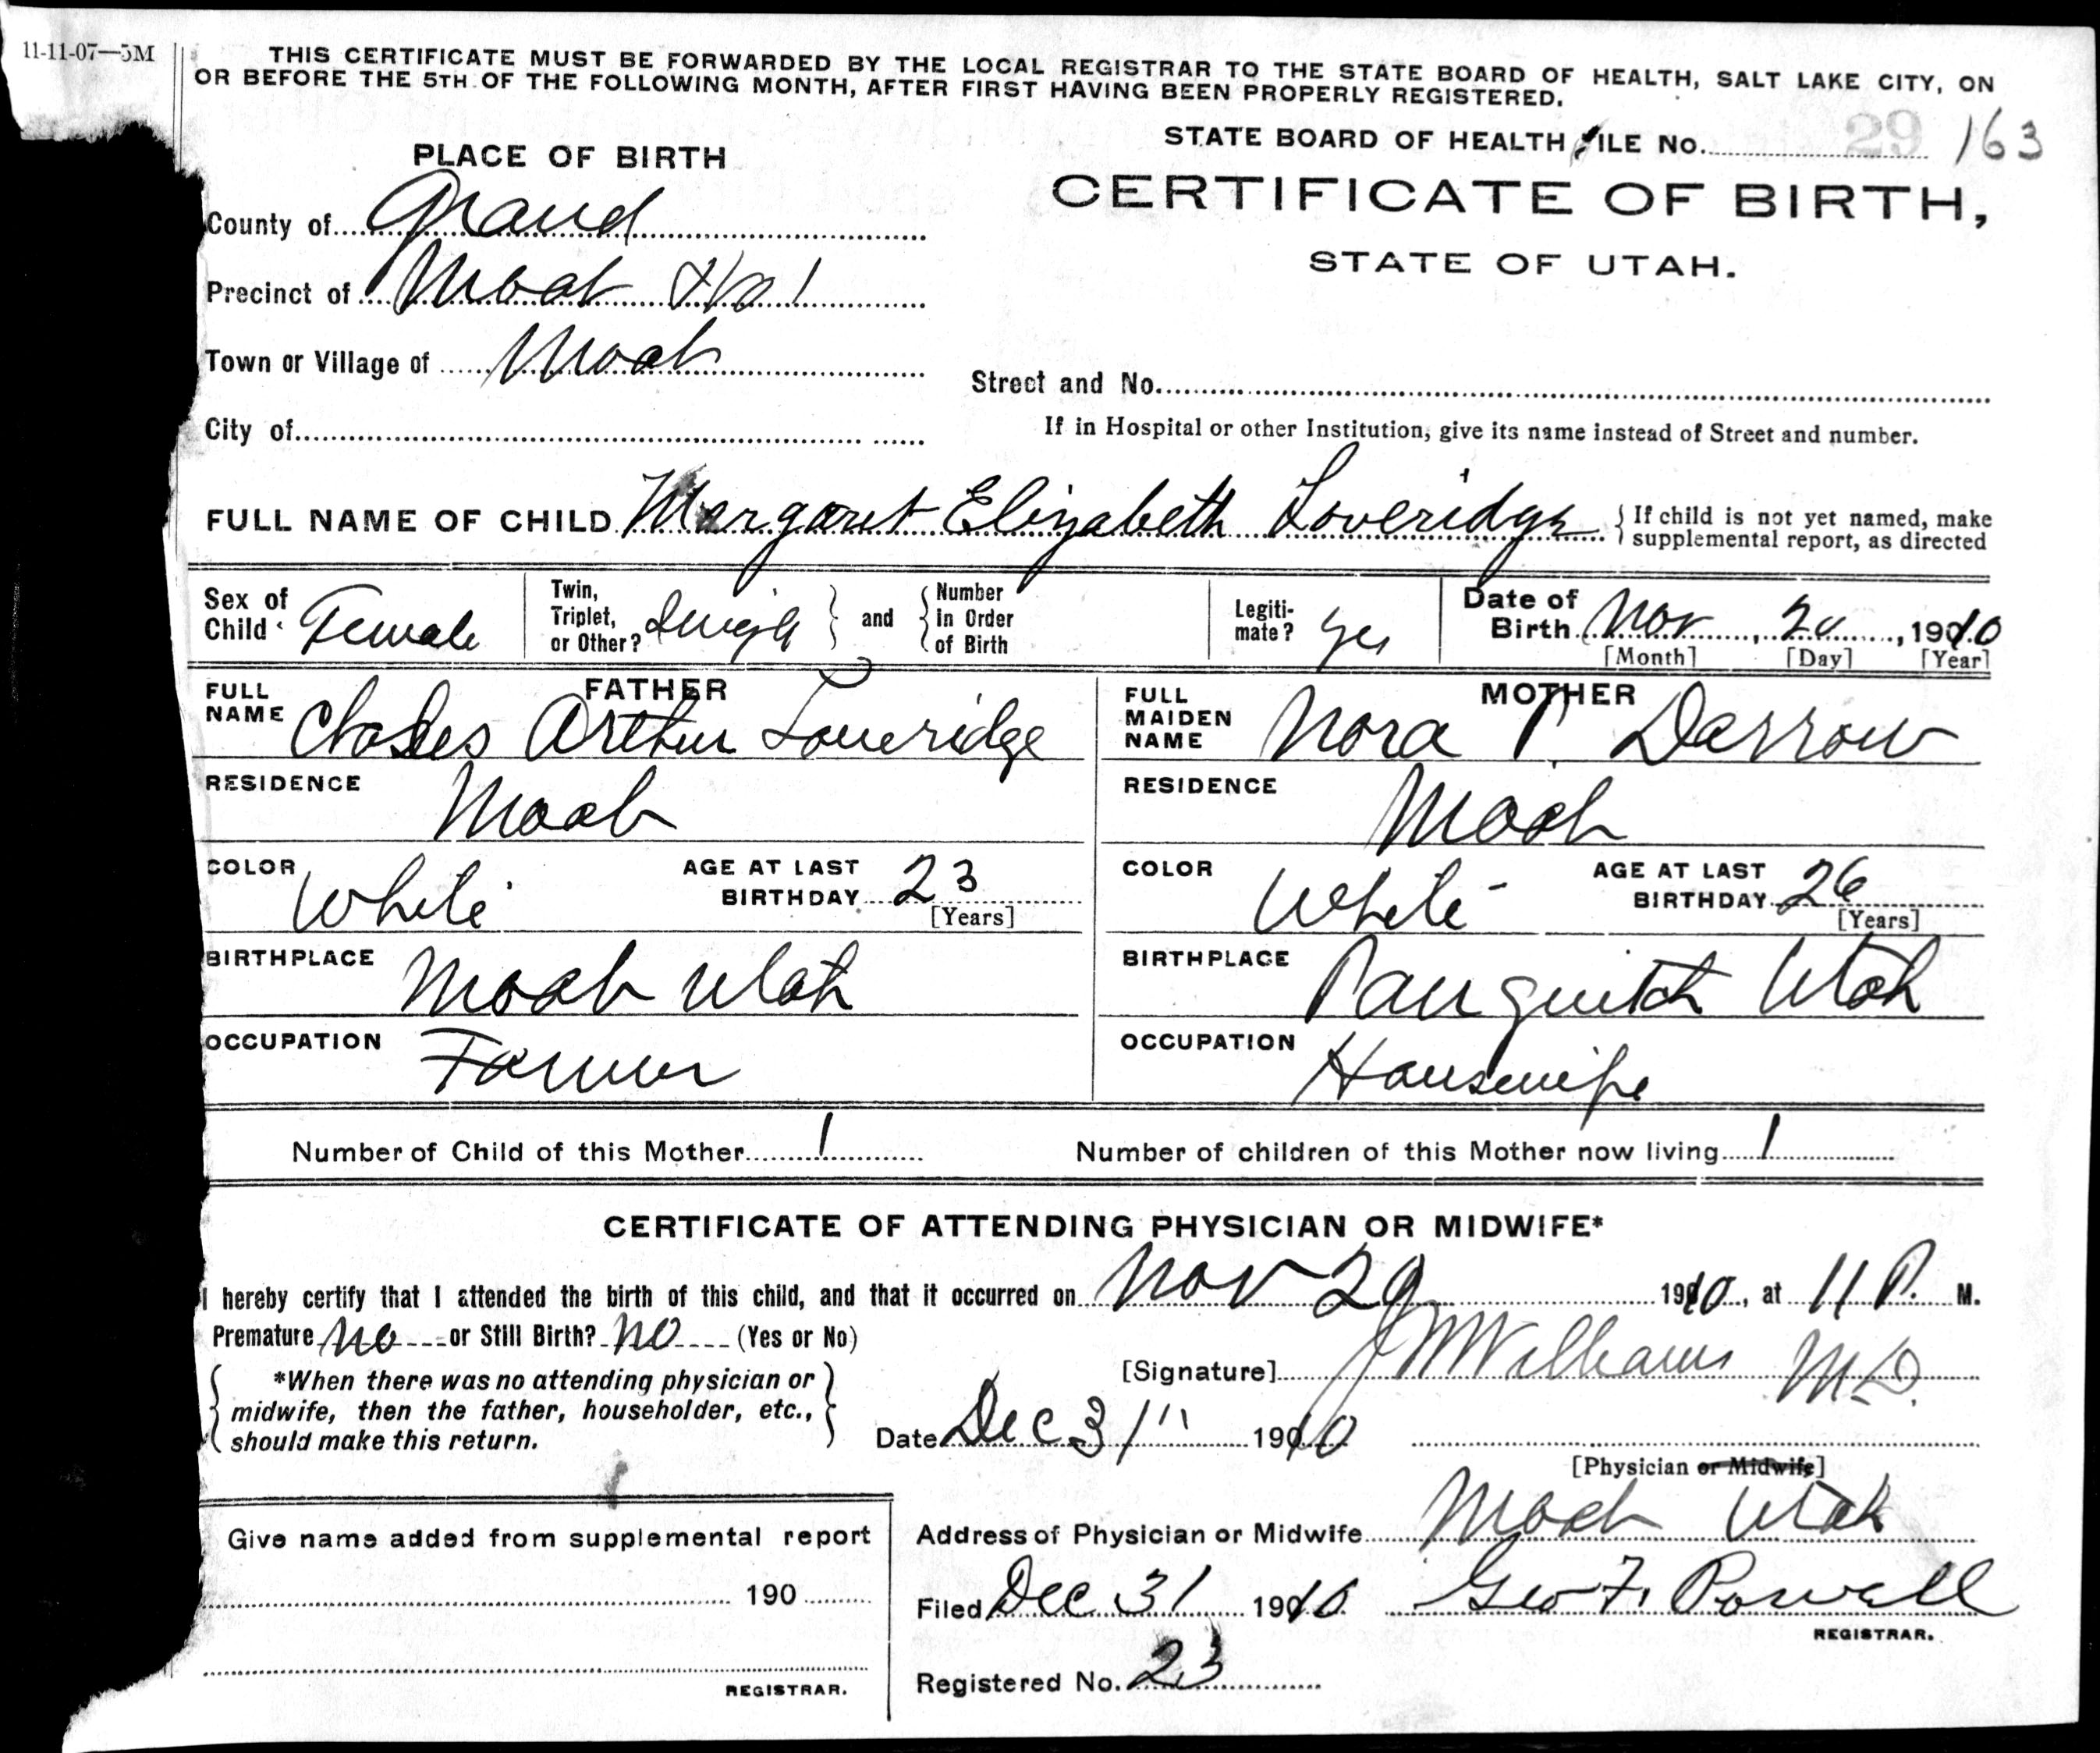 11-11-07—5M
THIS CERTIFICATE MUST BE FORWARDED BY THE LOCAL REGISTRAR TO THE STATE BOARD OF HEALTH, SALT LAKE CITY, ON
OR BEFORE THE 5TH OF THE FOLLOWING MONTH, AFTER FIRST HAVING BEEN PROPERLY REGISTERED.
STATE BOARD OF HEALTH FILE No. 29 163
PLACE OF BIRTH
CERTIFICATE OF BIRTH,
STATE OF UTAH.
County of Grand
Precinct of Moab No 1
Town or Village of Moab
Street and No.
City of
If in Hospital or other Institution, give its name instead of Street and number.
FULL NAME OF CHILD Margaret Elizabeth Loveridge { If child is not yet named, make
supplemental report, as directed
Sex of Child Female
Twin, Triplet, or Other? Single } and { Number in Order of Birth
Legitimate? Yes
Date of Birth Nov, , 1910
[Month] [Day] [Year]
FATHER
FULL NAME Charles Arthur Loveridge
MOTHER
FULL MAIDEN NAME Nora P. Darrow
RESIDENCE Moab
RESIDENCE Moab
COLOR White AGE AT LAST BIRTHDAY 23 [Years]
COLOR White AGE AT LAST BIRTHDAY 26 [Years]
BIRTHPLACE Moab Utah
BIRTHPLACE Panguitch Utah
OCCUPATION Farmer
OCCUPATION Housewife
Number of Child of this Mother 1 Number of children of this Mother now living 1
CERTIFICATE OF ATTENDING PHYSICIAN OR MIDWIFE*
I hereby certify that I attended the birth of this child, and that it occurred on Nov 29 1910, at 11 P. M.
Premature no or Still Birth? no (Yes or No)
[Signature] J W Williams M.D.
{ *When there was no attending physician or
midwife, then the father, householder, etc.,
should make this return. }
Date Dec 31" 1910
[Physician or Midwife]
Address of Physician or Midwife Moab Utah
Give name added from supplemental report
190
REGISTRAR.
Filed Dec 31 1910 Geo F. Powell
REGISTRAR.
Registered No. 23